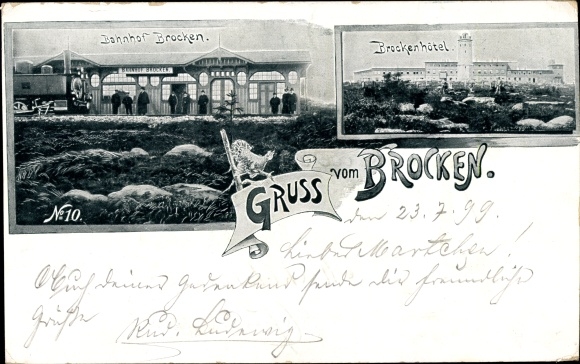 Bahnhof Brocken.
BAHNHOF BROCKEN
Brockenhôtel.
No 10.
GRUSS vom BROCKEN.
den 23.7.99.
Liebes Martchen!
Auch deiner gedenkend sende dir freundliche
Grüße
Rud. Ludewig